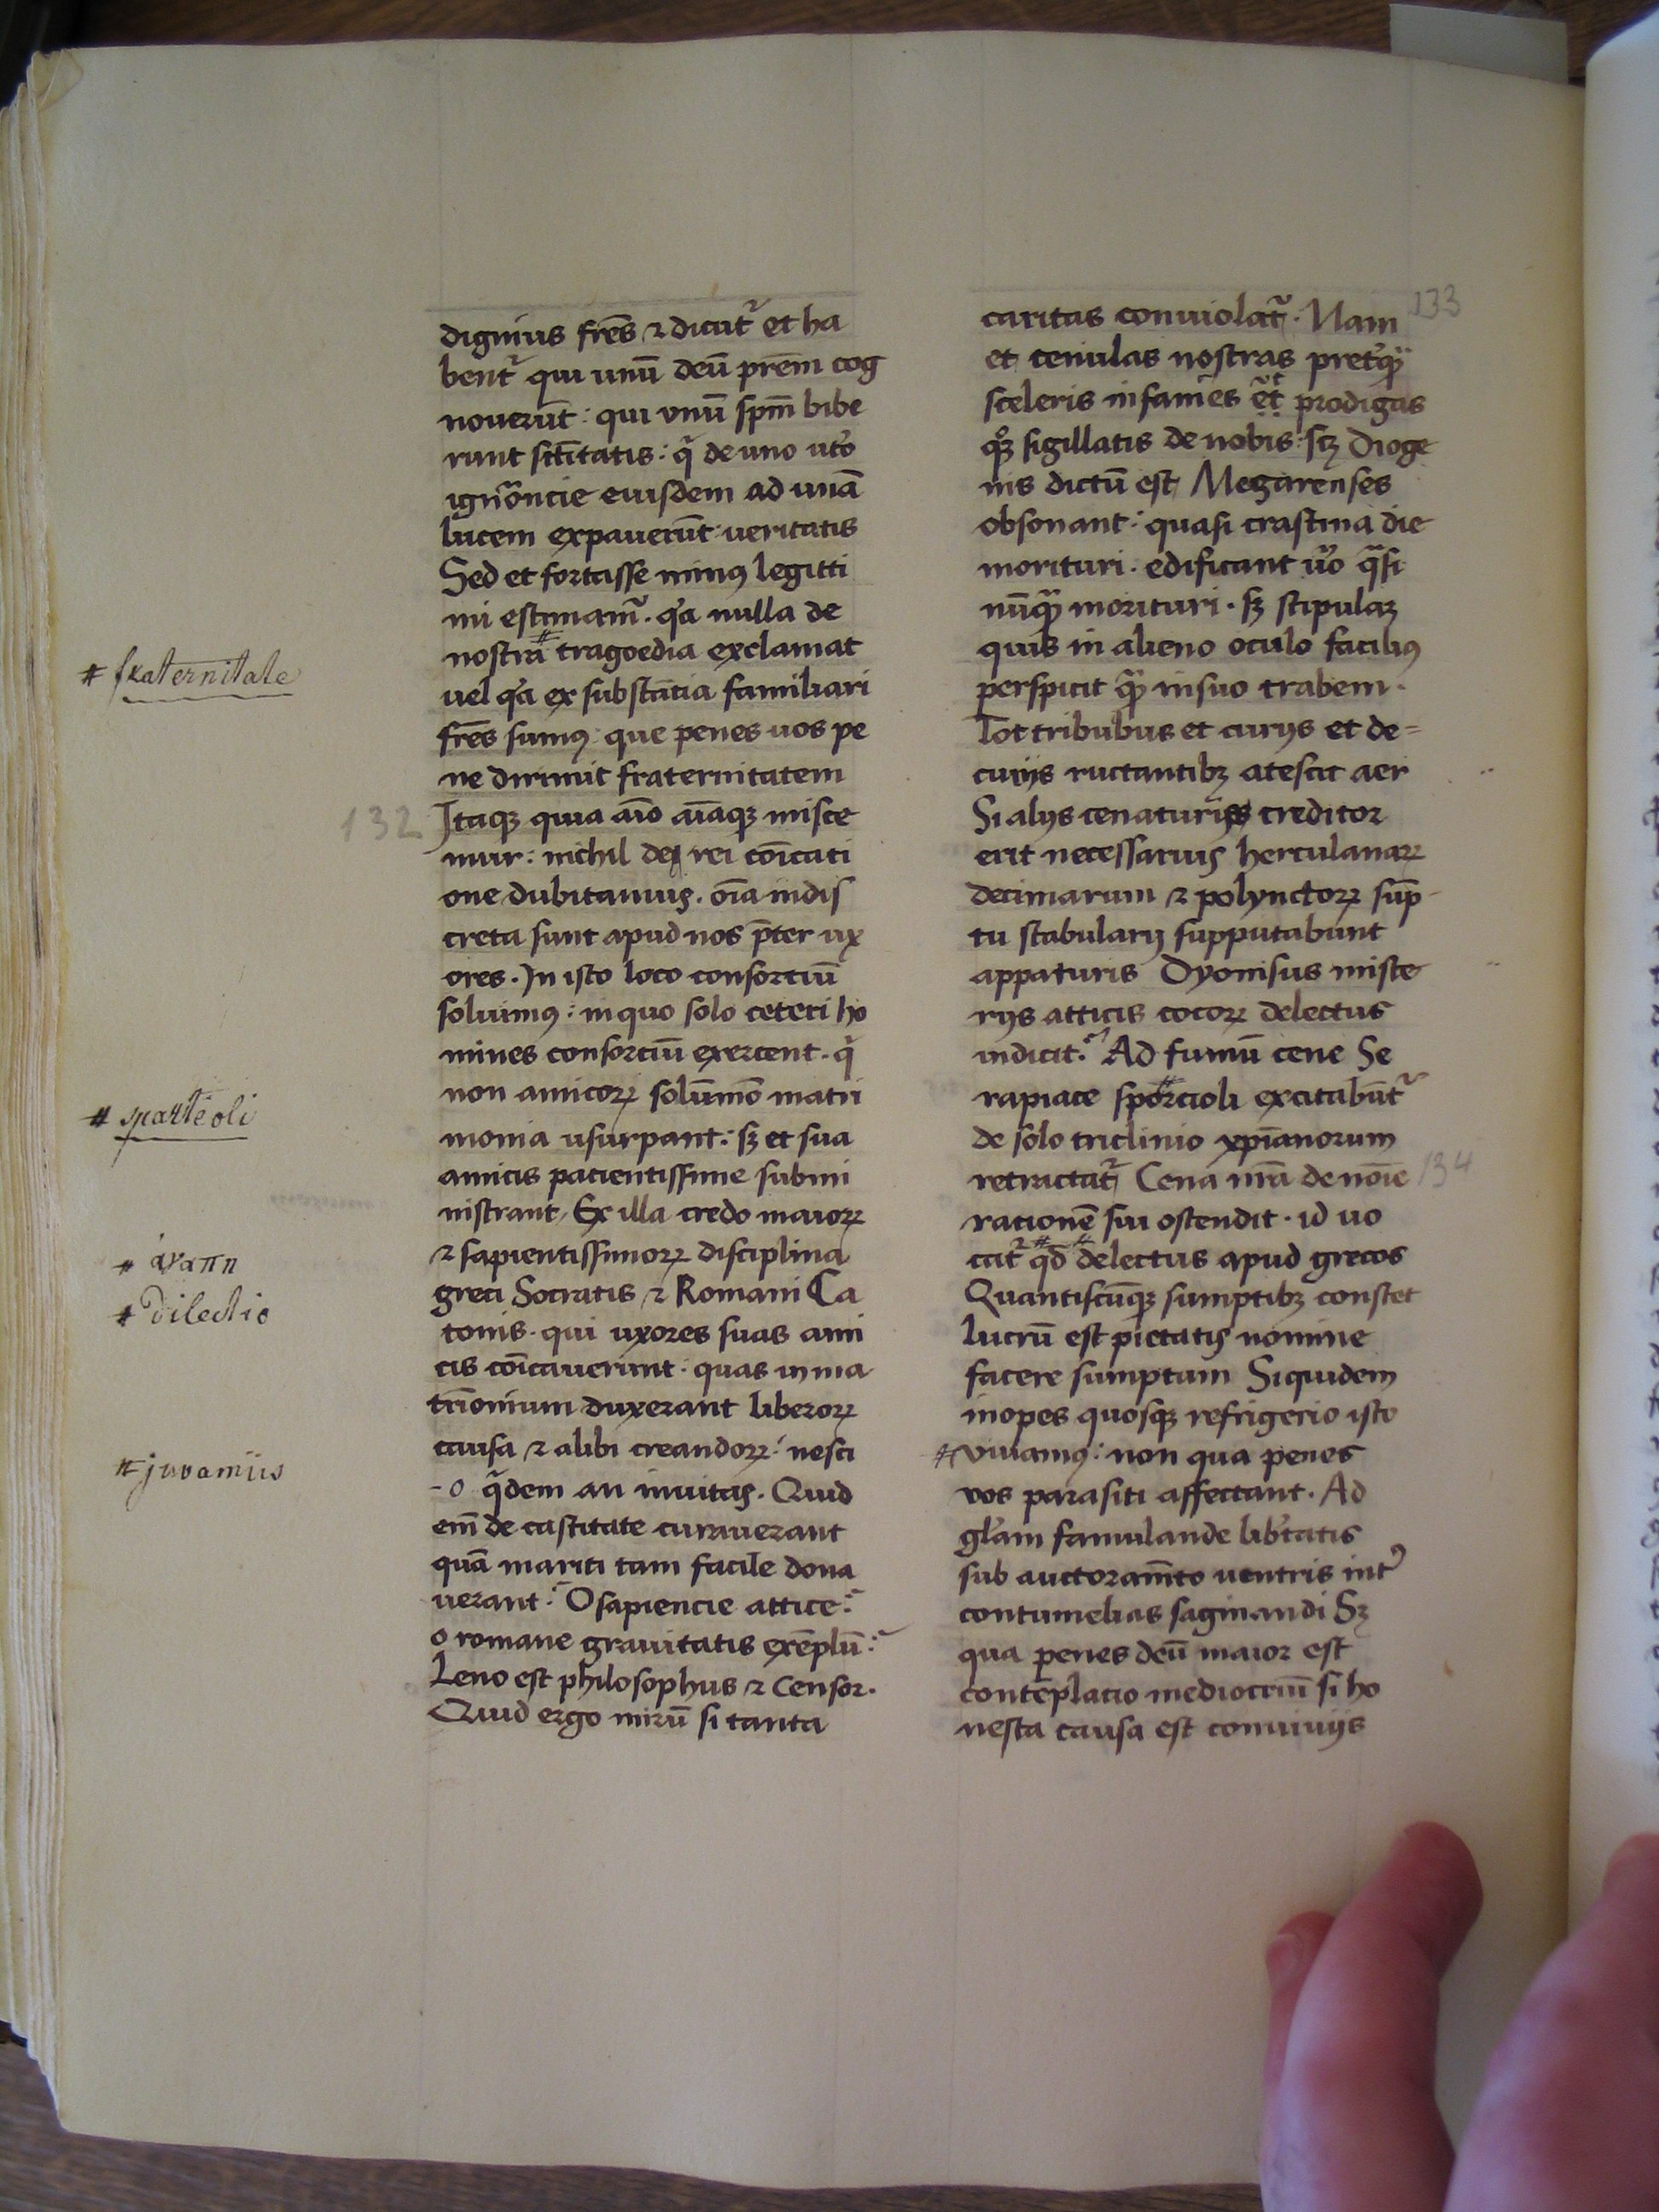 dignius fr̄es ⁊ dicūt᷑ et ha
bent᷑ qui unū deū pr̄em cog
nouerūt : qui vnū sp̄m bibe
runt sc̄itatis : q̄ de uno ut̾o
ignorancie eiusdem ad unā
lucem expauerūt : veritatis
Sed et fortasse minꝰ legitti
mi estimam᷑ . q̾a nulla de
nostra # tragoedia exclamat
uel q̾a ex substācia familiari
fr̄es sumꝰ : que penes uos pe
ne dirimit fraternitatem
132 Itaqꝫ quia aīo aīaqꝫ misce
mur : nichil de rei cōīcati
one dubitamus . oīa indis
creta sunt apud nos p̄ter ux
ores . In isto loco consorciū
soluimꝰ : in quo solo ceteri ho
mines consorciū exercent . q̄
non amicoꝝ solūmō matri
monia usurpant : sꝫ et sua
amicis pacientissime submi
nistrant / Ex illa credo maioꝝ
⁊ sapientissimoꝝ disciplina
greci Socratis ⁊ Romani Ca
tonis . qui uxores suas ami
cis cōīcauerunt : quas in ma
trīonium duxerant liberoꝝ
causa ⁊ alibi creandoꝝ : nesci
- o q̄dem an inuitas . Quid
em̄ de castitate curauerant
quā mariti tam facile dona
uerant : O sapiencie attice :
o romane grauitatis exēplū :
Leno est philosophus ⁊ Censor .
Quid ergo mirū si tanta
# fraternitate
# sparteoli
# ἀγαπη
# Dilectio
# juvamus
caritas conuiolat᷑ . Nam 133
et cenulas nostras pret̾qꝫ
sceleris infames ēt prodigas
qꝫ sigillatis de nobis : scꝫ Dioge
nis dictū est Megarenses
obsonant : quasi crastina die
morituri . edificant ūo q̄si
nūqꝫ morituri . sꝫ stipulaꝫ
quis in alieno oculo faciliꝰ
perspicit qꝫ in suo trabem .
Tot tribubus et curijs et de=
curijs ructantibꝫ atescit aer
Si alijs cenaturis creditor
erit necessarius herculanaꝝ
decimarum ⁊ polynctoꝝ sūp-
tu stabularij supputabunt
appaturis Dyonisus miste
rijs atticis cocoꝝ delectus
indicit : Ad fumū cene Se
rapiace # sporcioli excitabūt᷑
de solo triclinio xp̄ianorum
retractat᷑ Cena nr̄a de noīe 134
rationē sui ostendit . id uo
cat᷑ # qd̄ # delectus apud grecos
Quantiscūqꝫ sumptibꝫ constet
lucrū est pietatis nomine
facere sumptum Siquidem
inopes quosqꝫ refrigerio isto
# viuamꝰ : non qua penes
vos parasiti affectant . Ad
gl̄am famulande lib̾tatis
sub auctoram̄to uentris int᷑
contumelias saginandi Sꝫ
qua penes deū maior est
contēplacio mediocriū si ho
nesta causa est conuiuijs